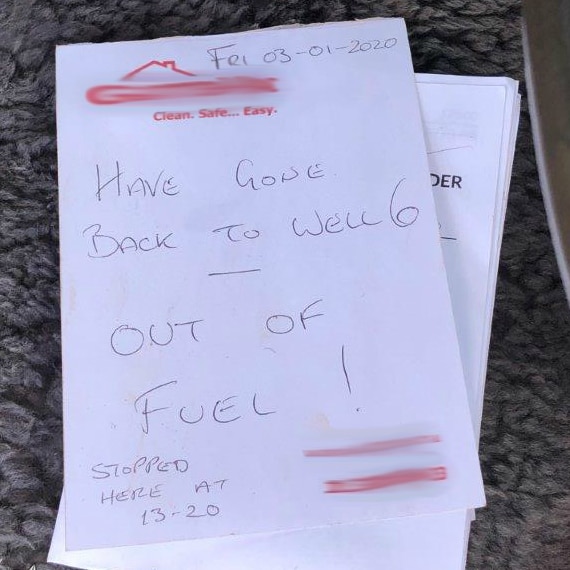 Fri 03-01-2020
Clean. Safe... Easy.
HAVE GONE
BACK TO WELL 6
OUT OF
FUEL !
STOPPED
HERE AT
13-20
DER